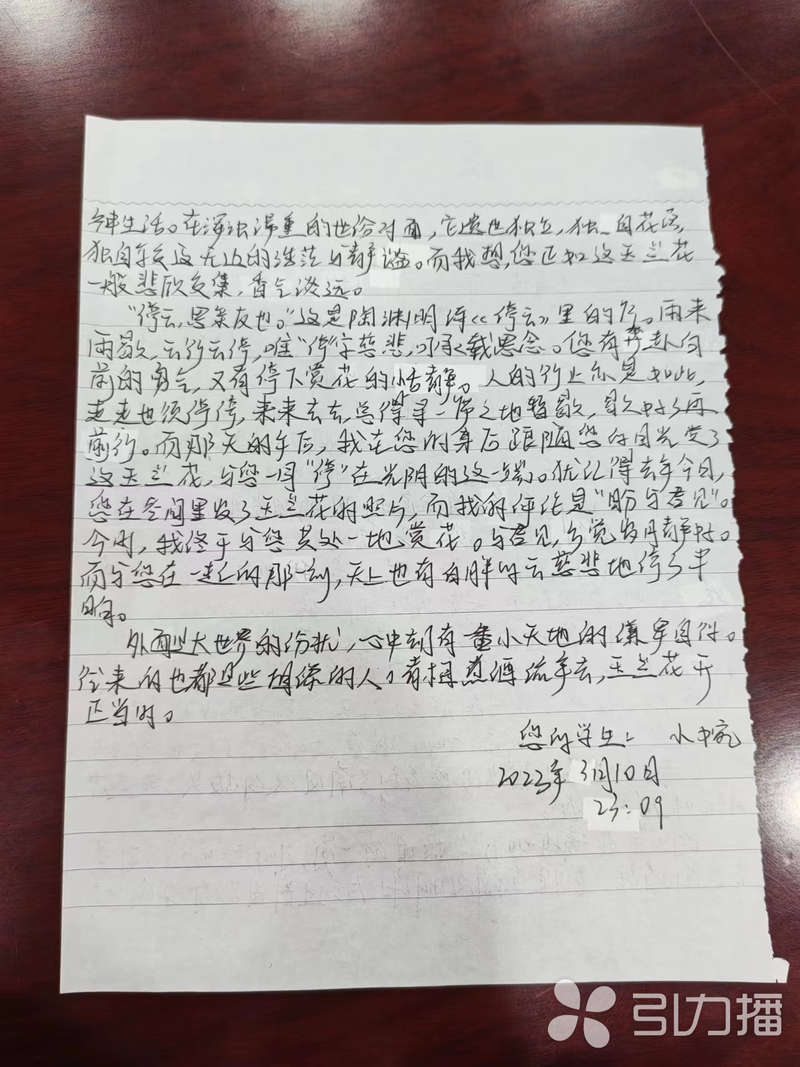 生活。在浑浊湿重的世俗对面，它遗世独立，独自花落，
独自无边的苍茫与静谧。而我想，您正如这玉兰花
一般悲欣交集，香气淡远。
“停云，思亲友也。”这是陶渊明诗《停云》里的句。雨来
雨歇，云行云停，唯“停”字慈悲，可承载思念。您有奔赴向
前的勇气，又有停下赏花的恬静。人的行止亦是如此，
走走也须停停，来来去去，总得寻一席之地暂歇，歇好了再
前行。而那天的午后，我在您的身后跟随您的目光赏了
这玉兰花，与您一同“停”在光阴的这一端。犹记得去年今日，
您在空间里发了玉兰花的照片，而我的评论是“盼与君见”。
今时，我终于与您共处一地赏花。与君见，今觉岁月静好。
而与您在一起的那一刻，天上也有白胖的云慈悲地停了半
晌。
外面大世界的纷扰，心中却有小天地的
往来的也都是些的人，玉兰花开
正当时。
您的学生：小
2023年3月10日
23:09
引力播